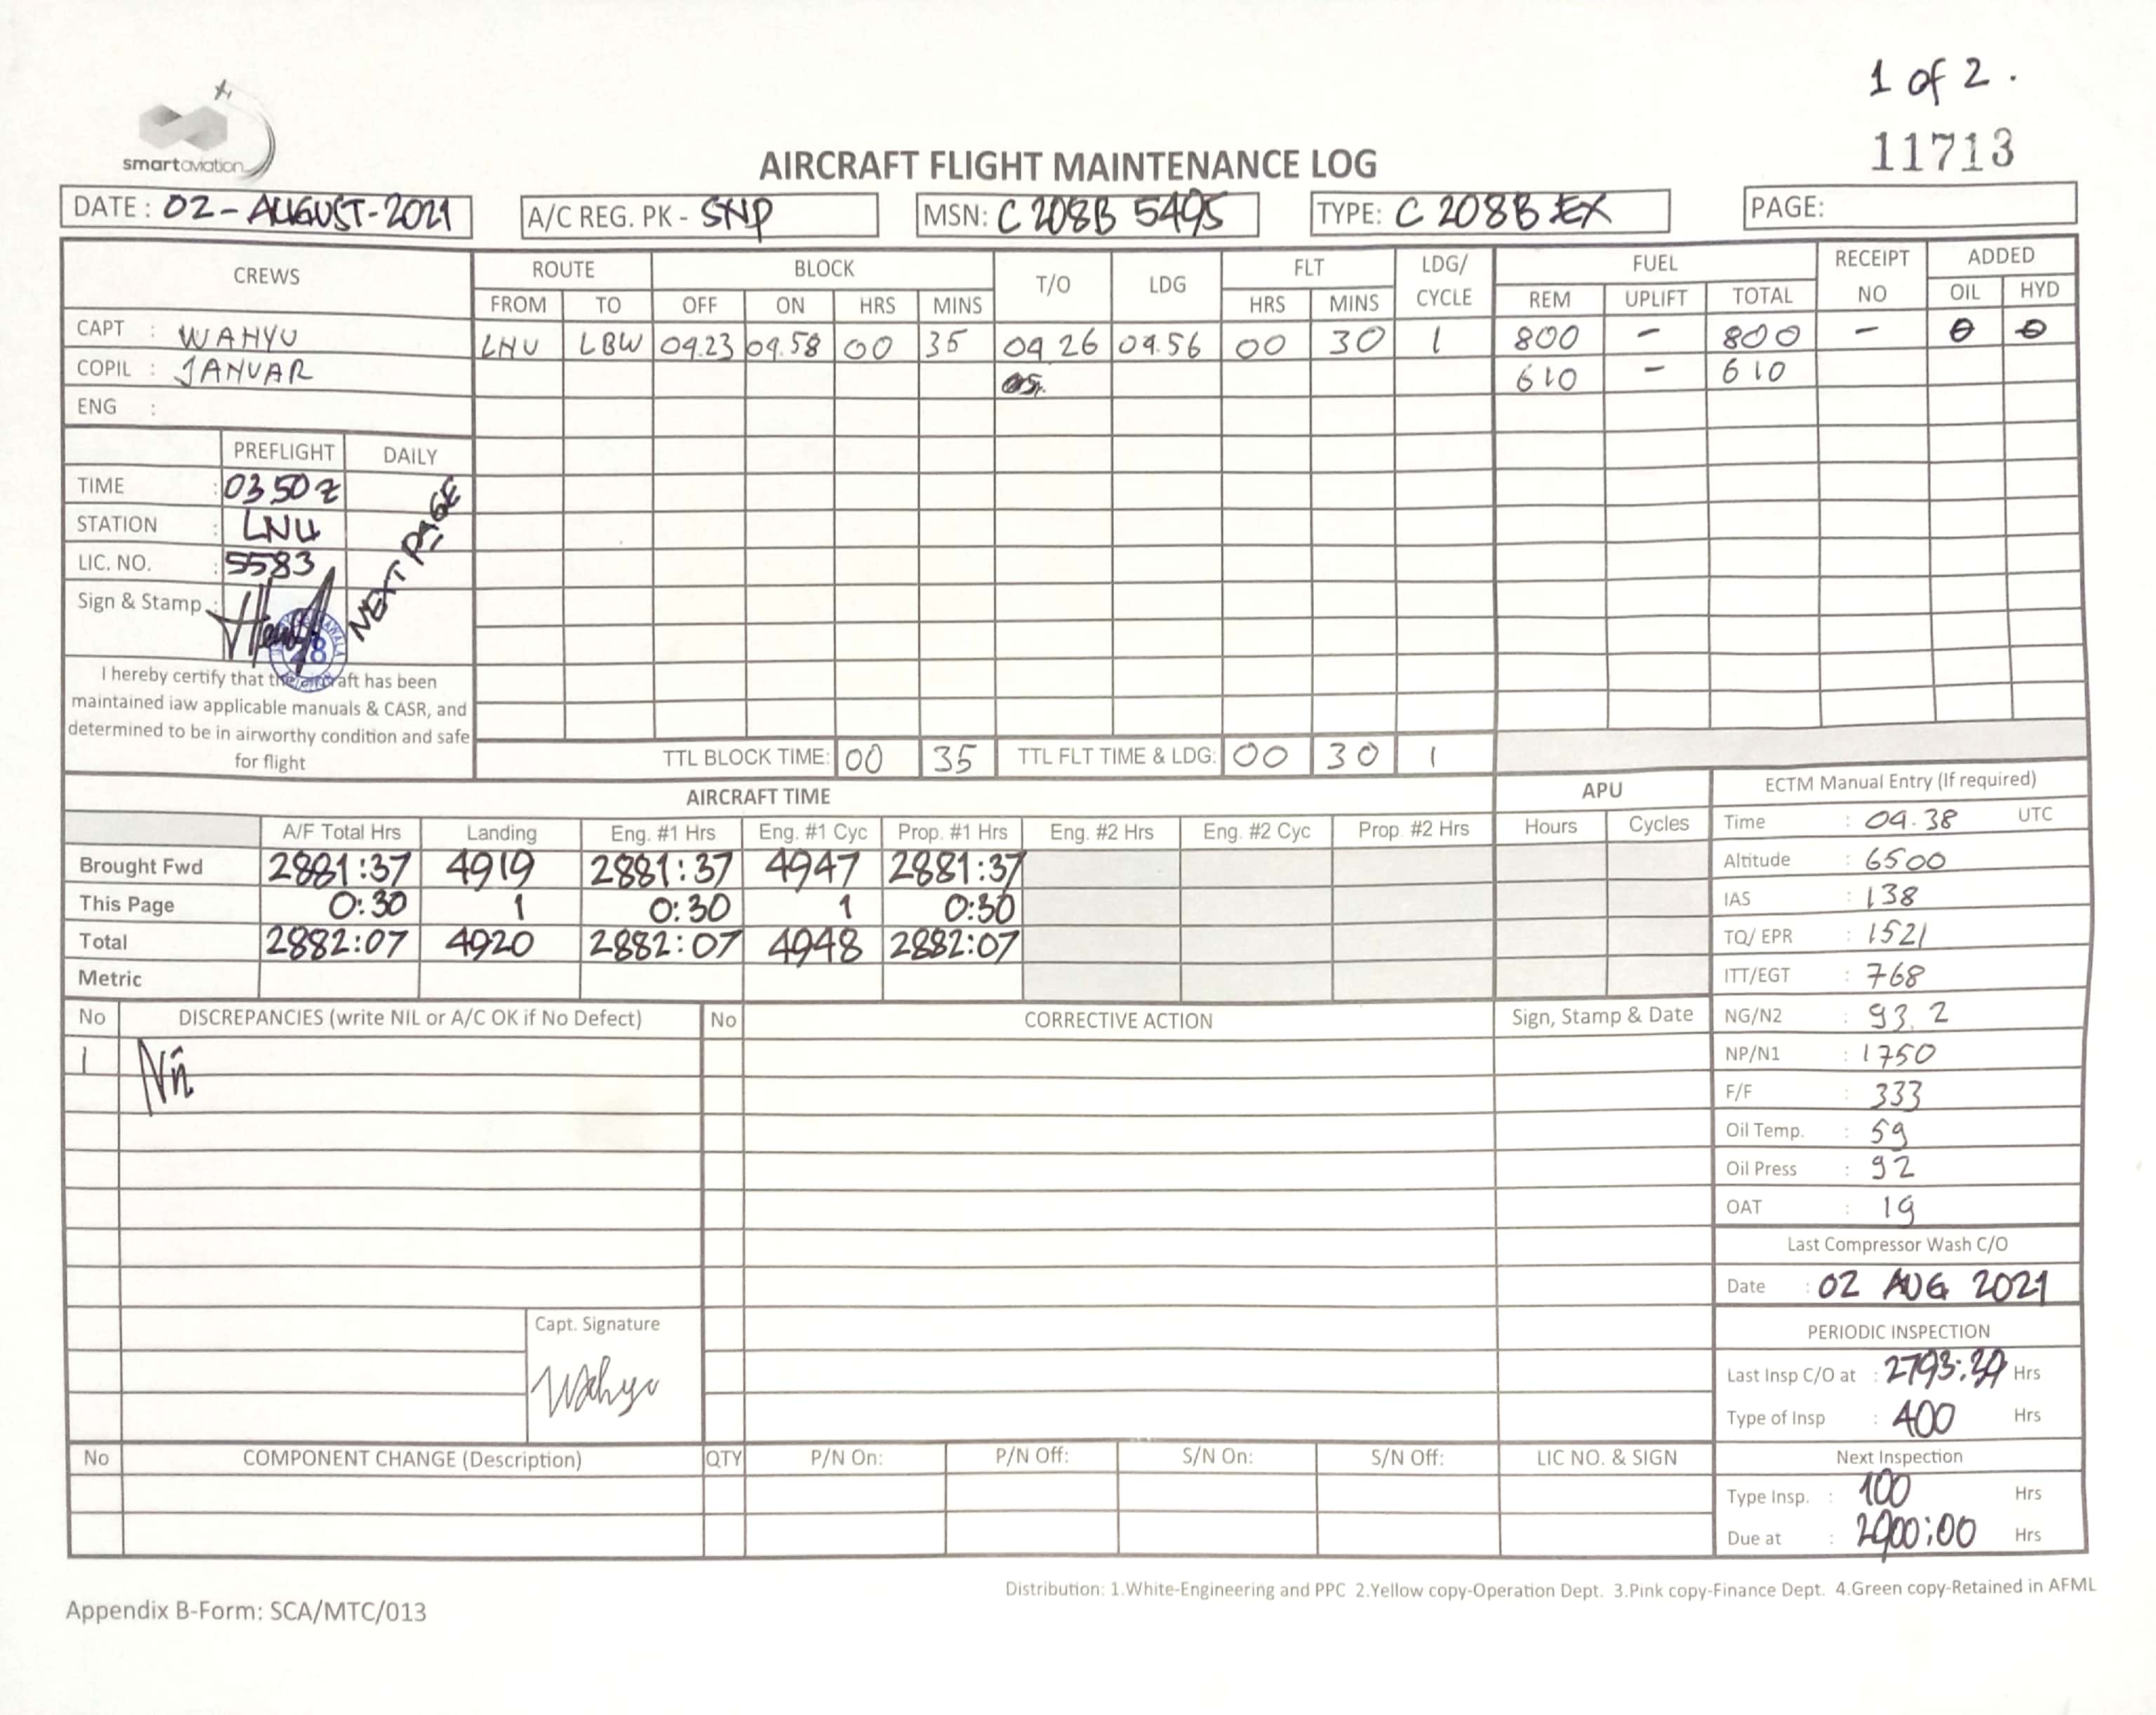 1 of 2 .
11713
smartaviation
AIRCRAFT FLIGHT MAINTENANCE LOG
DATE : 02-AUGUST-2021 A/C REG. PK - SNP MSN: C 208B 5495 TYPE: C 208B EX PAGE:
CREWS ROUTE BLOCK T/O LDG FLT LDG/ CYCLE FUEL RECEIPT NO ADDED
FROM TO OFF ON HRS MINS HRS MINS REM UPLIFT TOTAL OIL HYD
CAPT : WAHYU LNU LBW 09.23 09.58 00 35 09.26 09.56 00 30 1 800 - 800 - 0 0
COPIL : JANUAR 610 - 610
ENG :
PREFLIGHT DAILY
TIME : 0350 Z
STATION : LNU
LIC. NO. : 5583
NEXT PAGE
Sign & Stamp :
I hereby certify that the aircraft has been
maintained iaw applicable manuals & CASR, and
determined to be in airworthy condition and safe
for flight
TTL BLOCK TIME: 00 35 TTL FLT TIME & LDG: 00 30 1
AIRCRAFT TIME APU
A/F Total Hrs Landing Eng. #1 Hrs Eng. #1 Cyc Prop. #1 Hrs Eng. #2 Hrs Eng. #2 Cyc Prop. #2 Hrs Hours Cycles
Brought Fwd 2881:37 4919 2881:37 4947 2881:37
This Page 0:30 1 0:30 1 0:30
Total 2882:07 4920 2882:07 4948 2882:07
Metric
ECTM Manual Entry (If required)
Time : 09.38 UTC
Altitude : 6500
IAS : 138
TQ/ EPR : 1521
ITT/EGT : 768
NG/N2 : 93.2
NP/N1 : 1750
F/F : 333
Oil Temp. : 59
Oil Press : 92
OAT : 19
Last Compressor Wash C/O
Date : 02 AUG 2021
PERIODIC INSPECTION
Last Insp C/O at : Hrs
Type of Insp : 400 Hrs
Next Inspection
Type Insp. : 100 Hrs
Due at : 2900:00 Hrs
No DISCREPANCIES (write NIL or A/C OK if No Defect) No CORRECTIVE ACTION Sign, Stamp & Date
1 Nil
Capt. Signature
Wahyu
No COMPONENT CHANGE (Description) QTY P/N On: P/N Off: S/N On: S/N Off: LIC NO. & SIGN
Distribution: 1.White-Engineering and PPC 2.Yellow copy-Operation Dept. 3.Pink copy-Finance Dept. 4.Green copy-Retained in AFML
Appendix B-Form: SCA/MTC/013